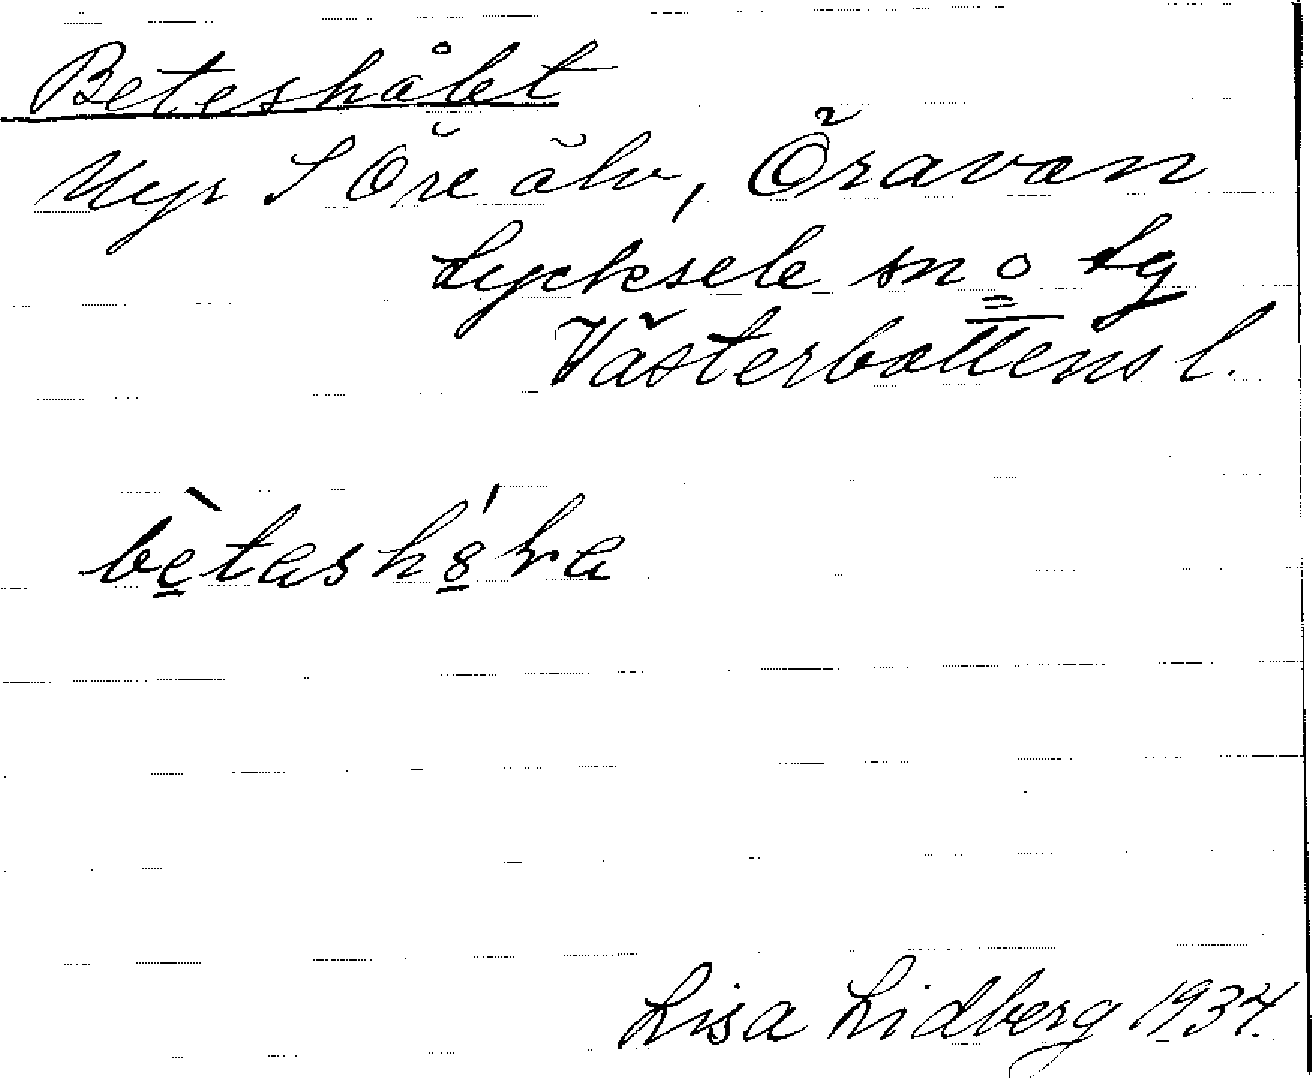 Beteshålet
Myr S Öre älv, Öravan
Lycksele sn o Lg
Västerbottens l.
bètash8́ra
Lisa Lidberg 1937.